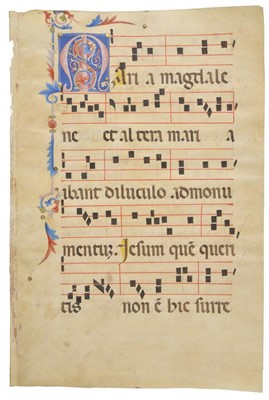 Mari a magdale
ne et al tera mari a
ibant diluculo admonu
mentuz. Jesum quē queri
tis non ē hic surre